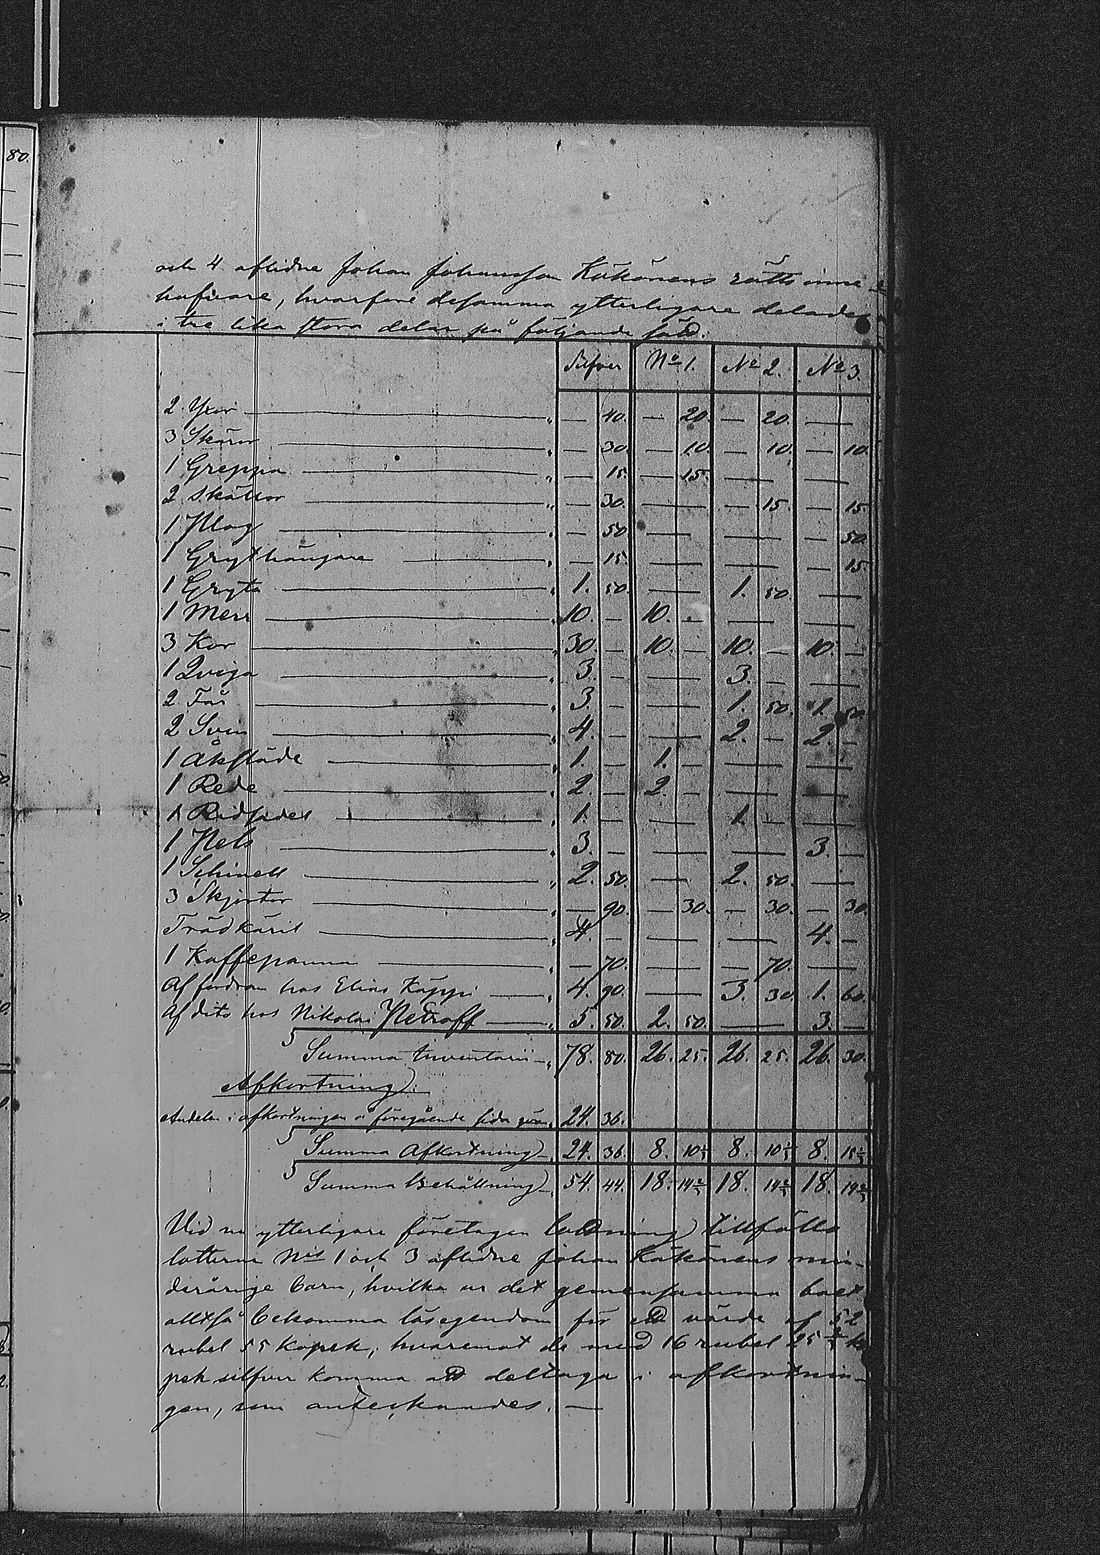 80.
och 4 aflidne Johan Johansson Käkönens rätts inne
hafvare, hvarföre desamma ytterligare delades
i tre lika stora delar på följande sätt:
Silfver No 1. No 2. No 3.
2 Yxor — 40. — 20. — 20. —
3 Skäror — 30. — 10. — 10. — 10.
1 Greppa — 15. — 15. — —
2 Skällor — 30. — — 15. — 15.
1 Plog — 50. — — 50.
1 Grythängare — 15. — — 15.
1 Gryta 1. 50. — 1. 50. —
1 Merr 10. — 10. — — —
3 Kor 30. — 10. — 10. — 10. —
1 Qviga 3. — — 3. — —
2 Får 3. — — 1. 50. 1. 50.
2 Svin 4. — — 2. — 2. —
1 Åksläde 1. — 1. — — —
1 Rede 2. — 2. — — —
1 Ridsadel 1. — — 1. — —
1 Pels 3. — — — 3. —
1 Schinell 2. 50. — 2. 50. —
3 Skjortor — 90. — 30. — 30. — 30.
Trädkäril 4. — — — 4. —
1 Kaffepanna — 70. — — 70. —
Af fordran hos Elias Käppi 4. 90. — 3. 30. 1. 60.
Af dito hos Nikolai Petroff 5. 50. 2. 50. — 3. —
Summa Inventarii 78. 80. 26. 25. 26. 25. 26. 30.
Afkortning.
Andelen i afkortningen å föregående sida gör 24. 36.
Summa Afkortning 24. 36. 8. 8. 8.
Summa Behållning 54. 44. 18. 18. 18.
Vid nu ytterligare företagen lottning tillföllo
lotterna Nis 1 och 3 aflidne Johan Käkönens min-
derårige barn, hvilka ur det gemensamma boet
alltså bekomma lösegendom för ett värde af 52
rubel 55 kopek, hvaremot de med 16 rubel 25 ko
pek silfver komma att deltaga i afkortnin-
gen, som antecknades. —